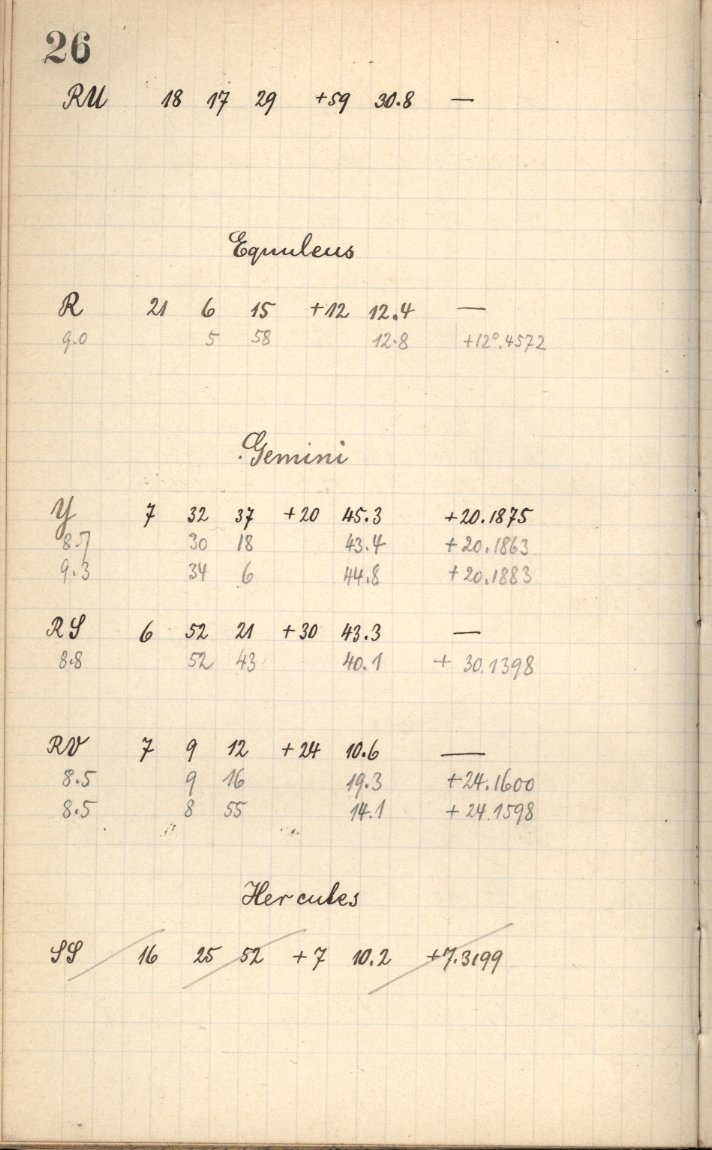 26
RU 18 17 29 +59 30.8 —
Equuleus
R 21 6 15 +12 12.4 —
9.0 5 58 12.8 +12°.4572
Gemini
Y 7 32 37 +20 45.3 +20.1875
8.7 30 18 43.4 +20.1863
9.3 34 6 44.8 +20.1883
RS 6 52 21 +30 43.3 —
8.8 52 43 40.1 + 30.1398
RV 7 9 12 +24 10.6 —
8.5 9 16 19.3 +24.1600
8.5 8 55 14.1 + 24.1598
Hercules
SS 16 25 52 +7 10.2 +7.3199